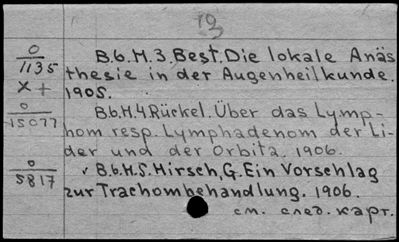 19
B.6.H.3.Best.Die lokale Anäs
thesie in der Augenheilkunde.
1905.
B.6.H.4.Rückel. Über das Lymp-
hom resp. Lymphadenom der Li-
der und der Orbita. 1906.
B.6.H.5.Hirsch,G.Ein Vorschlag
zur Trachombehandlung. 1906.
см. след. карт.
0
1135
x +
0
15077
0
5817